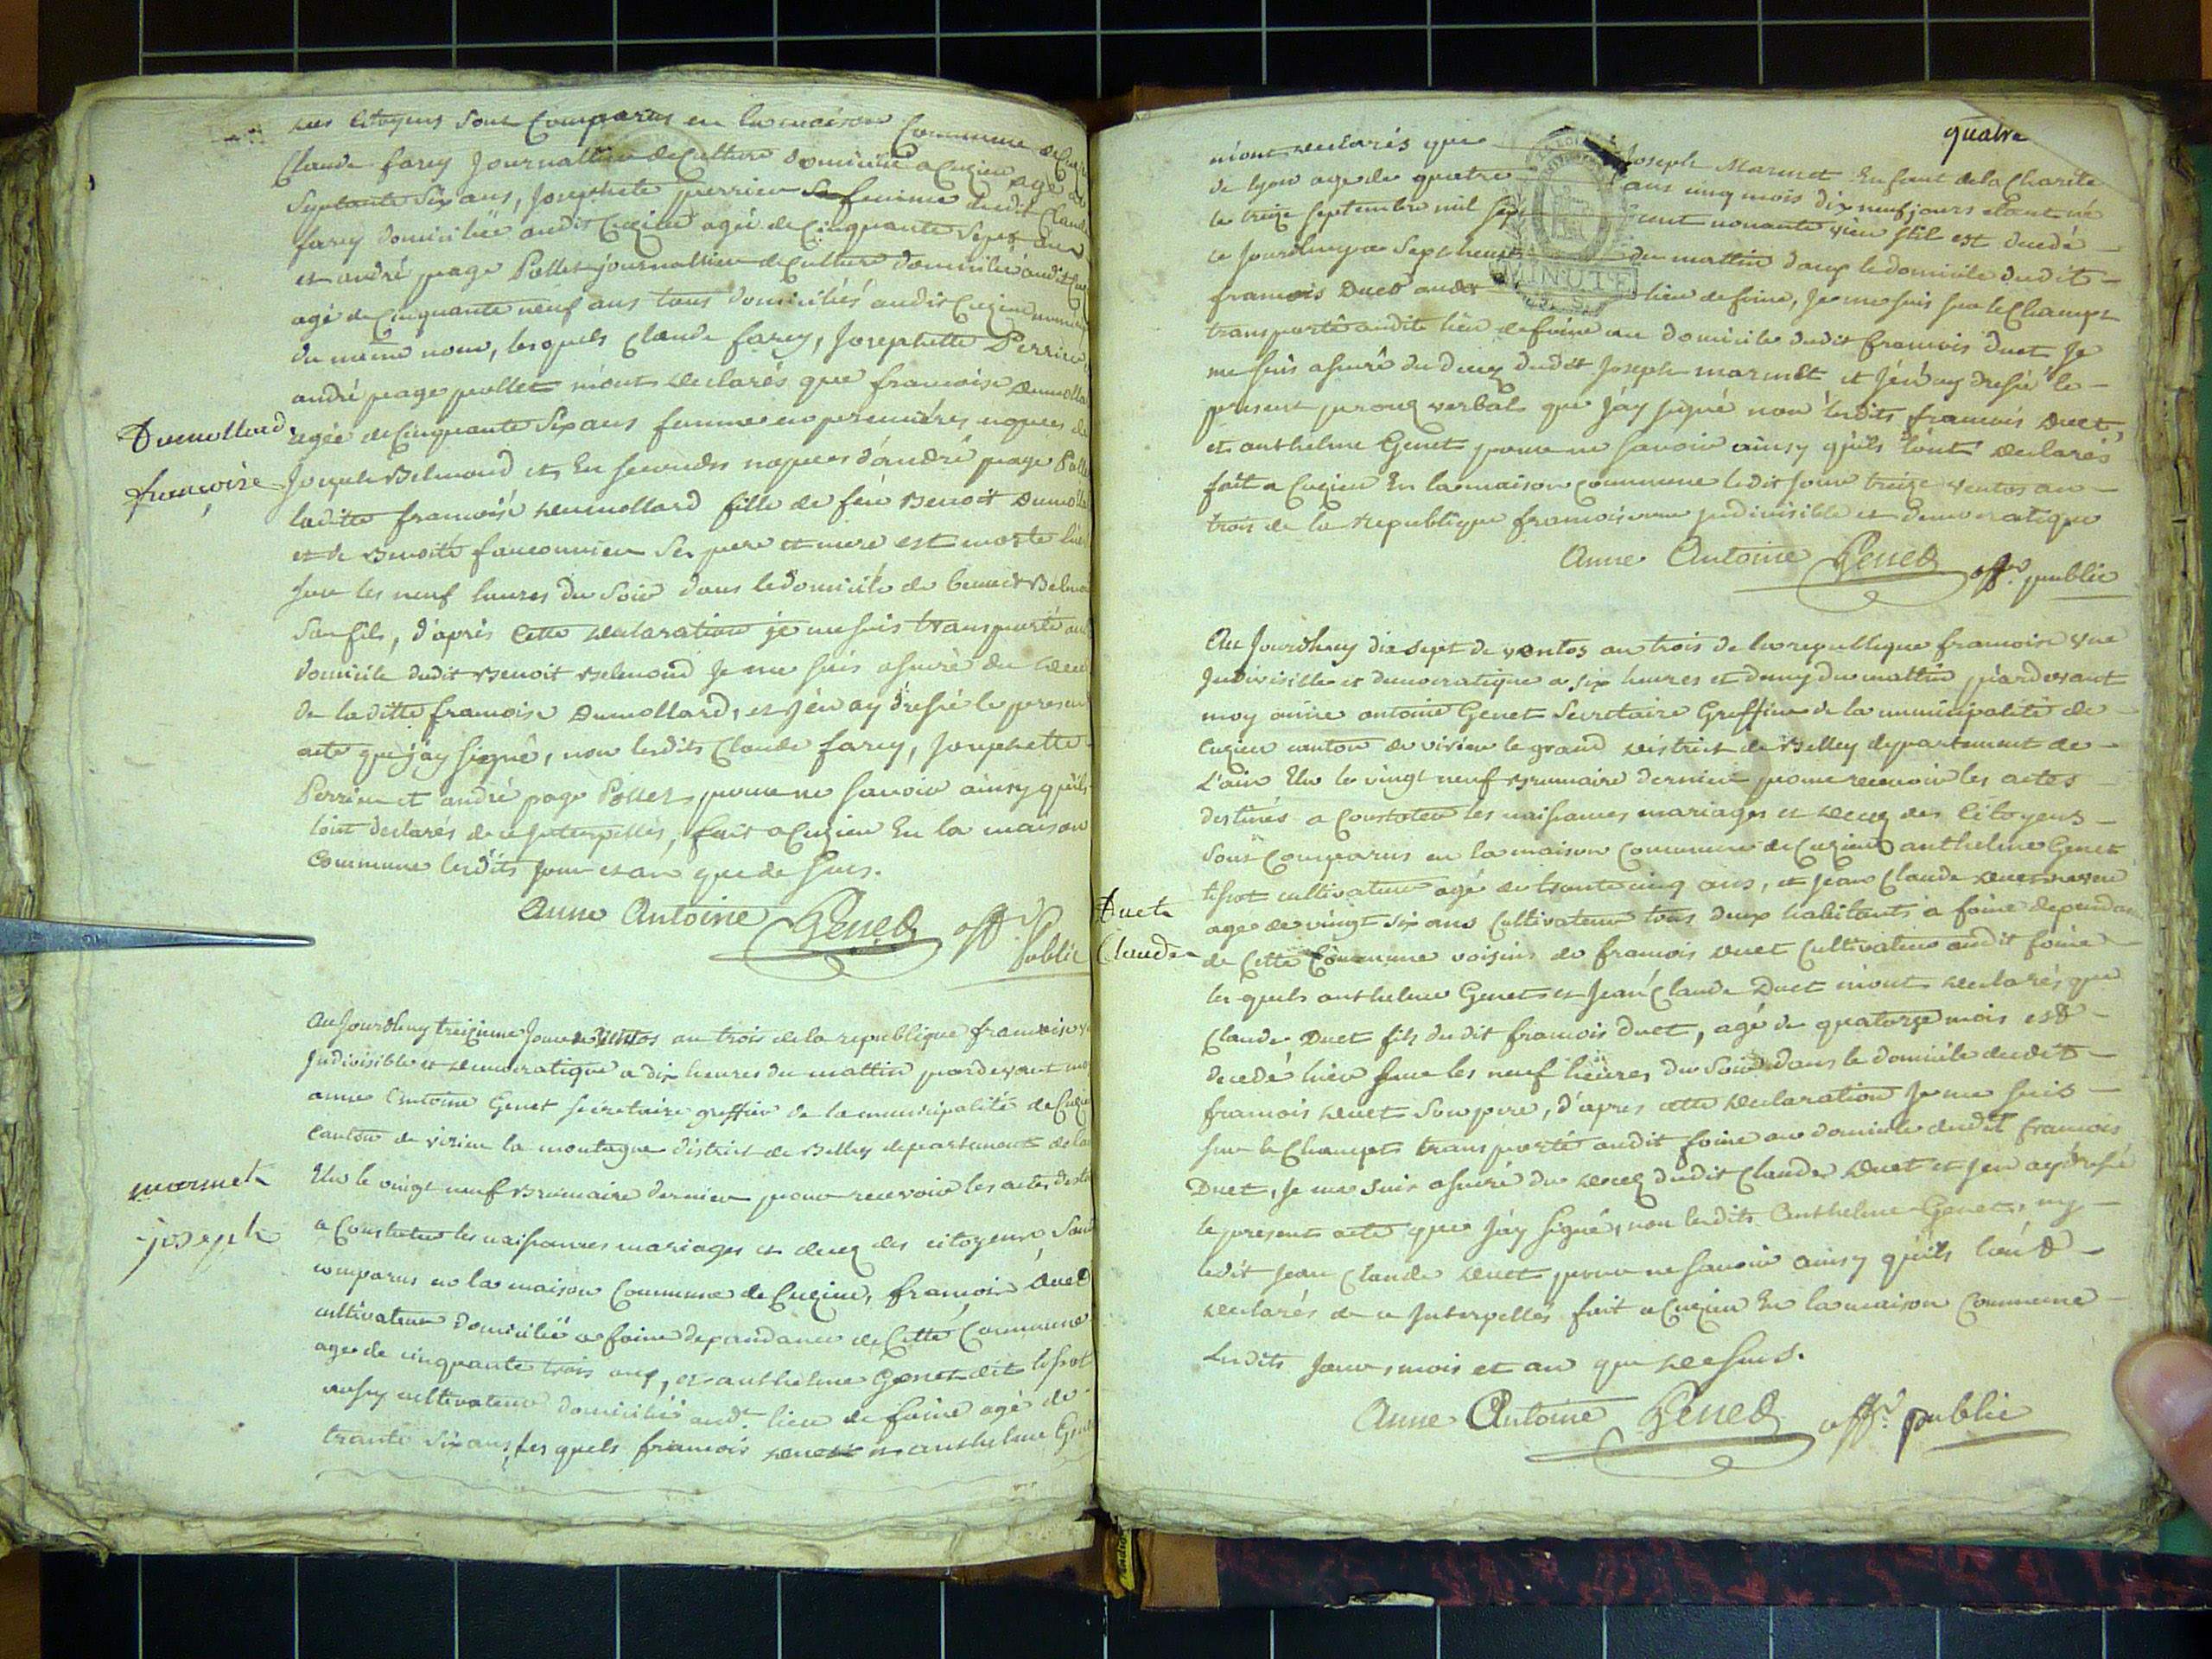 des Citoyens sont Comparus en la maison Commune de
Claude farcy Journallier deCulture domicilié a Cuzieu agé de
Septante Six ans, Josephete perrier femme dudit Claude
farcy domiciliée audit Cuzieu agée de Cinquante Sept ans
et andré page Pollet journallier deCulture domicilié audit
agé de Cinquante neuf ans tous domiciliés audit Cuzieu
du même nom, lesquels Claude farcy, Josephette Perrier
andré page pollet m'ont declarés que francoise Dumollard
Dumollard
francoise
agée de Cinquante Six ans femme en premières nopces de
Joseph Belmond et En secondes nopces d'andré page
laditte francoise dumollard fille de feu Benoit
et de Benoite fauconnier ses pere et mere est morte hier
sur les neuf heures du Soir dans le domicile de benoit
Son fils, d'après Cette declaration je me suis transporté au
domicile dudit Benoit Belmond Je me suis assuré du
de laditte francoise Dumollard, et j'en ay dressé le present
acte que j'ay signé, non lesdits Claude farcy, Josephette
Perrier et andré page Pollet pour ne savoir ainsy qu'ils
l'ont declarés de ce Interpellés, fait a Cuzieu En la maison
Commune lesdits Jour et an que de sus.
Anne Antoine Genet off.r
Public
AuJourdhuy treizieme Jour de Ventos an trois de la republique francoise
Indivisible et democratique a dix heures du mattin pardevant
anne Antoine Genet secretaire greffier de la municipalité de
Canton de virieu la montagne district de Belley departement de
marmet
joseph
Elu le vingt neuf Brumaire dernier pour recevoir les actes
a Constater les naissances mariages et decez des citoyens Sont
comparus en la maison Commune de Cuzieu, francois Duet
cultivateur domicilié a foine dependance de Cette Commune
agé de cinquante trois ans, et anthelme Genet dit tissot
aussy cultivateur domicilié aud.t lieu de foine agé de
trante six ans, lesquels francois duet et anthelme Genet
quatre
m'ont declarés que Joseph Marmet Enfant de la Charité
de lyon agé de quatre ans cinq mois dix neuf jours etant né
le treize septembre mil sept cent nonante vieu stil est decedé
ce Jourdhuy a Sept heures du mattin dans le domicile dudit
francois Duet audit lieu de foine, Je me suis sur le Champt
transporté audite lieu de foine au domicile dudit francois duet Je
me suis assuré du decez dudit Joseph marmet et j'en ay dressé le
present procez verbal que j'ay signé non lesdits francois Duet,
et anthelme Genet pour ne savoir ainsy qu'ils l'ont declarés
fait a Cuzieu En la maison commune ledit Jour treize ventos an
trois de la republique francoise une indivisible et democratique
Anne Antoine Genet off.r public
Au Jourdhuy dix sept de ventos an trois de la republique francoise une
Indivisible et democratique a six heures et demy du mattin pardevant
moy anne antoine Genet Secretaire Greffier de la municipalité de
Cuzieu canton de virieu le grand district de Belley departement de
L'ain Elu le vingt neuf Brumaire dernier pour recevoir les actes
destinés a Constater les naissances mariages et decez des Citoyens
Sont Comparus en la maison Commune de Cuzieu anthelme Genet
tissot cultivateur agé de trante cinq ans, et Jean Claude duet
Duet
Claude
agé de vingt six ans Cultivateur tous deux habitants a foine dependance
de Cette Commune voisins de francois duet Cultivateur audit foine
les quels anthelme Genet et Jean Claude Duet m'ont declarés que
Claude Duet fils dudit francois duet, agé de quatorze mois est
decedé hier sur les neuf heures du Soir dans le domicile dudit
francois duet Son pere, d'apres cette declaration Je me suis
sur le Champt transporté audit foine au domicile dudit francois
Duet, Je me suis assuré du decez dudit Claude Duet et j'en ay dressé
le present acte que j'ay signé, non lesdits Anthelme Genet, ny
ledit Jean Claude duet pour ne savoir ainsy qu'ils l'ont
declarés de ce Interpellés fait a Cuzieu En la maison Commune
Lesdits Jour, mois et an que dessus.
Anne Antoine Genet off.r public
MINUTE